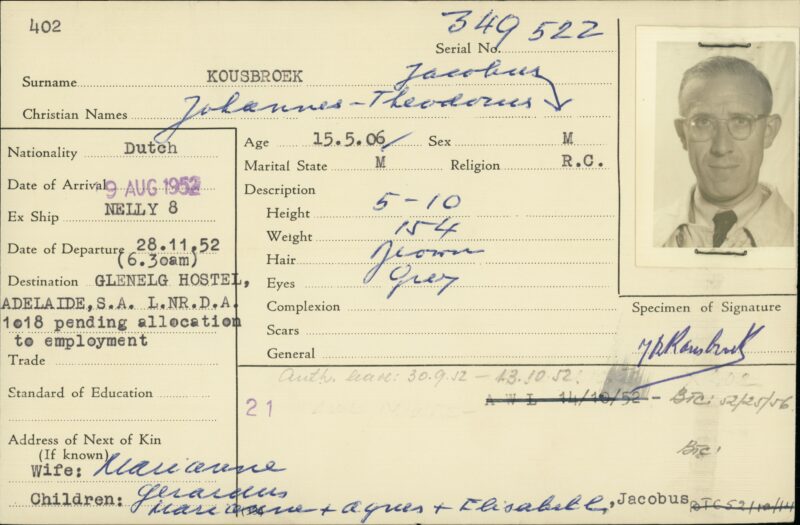 402
349522
Serial No.
Surname KOUSBROEK Jacobus
Christian Names Johannes-Theodorus
Nationality Dutch
Age 15.5.06 Sex M
Date of Arrival 9 AUG 1952
Marital State M Religion R.C.
Ex Ship NELLY 8
Description
Height 5-10
Date of Departure 28.11.52
Weight 154
(6.30am)
Hair Brown
Destination GLENELG HOSTEL,
Eyes Grey
ADELAIDE, S.A. L.NR.D.A.
Complexion
Specimen of Signature
1018 pending allocation
Scars
to employment
General
Trade
Auth. leave: 30.9.52 - 13.10.52.
Standard of Education
21
A W L 14/10/52 - BTC: 52/25/56.
Address of Next of Kin
(If known)
BTC:
Wife: Marianne
Children: Gerardus
Marianne + Agnes + Elisabeth, Jacobus